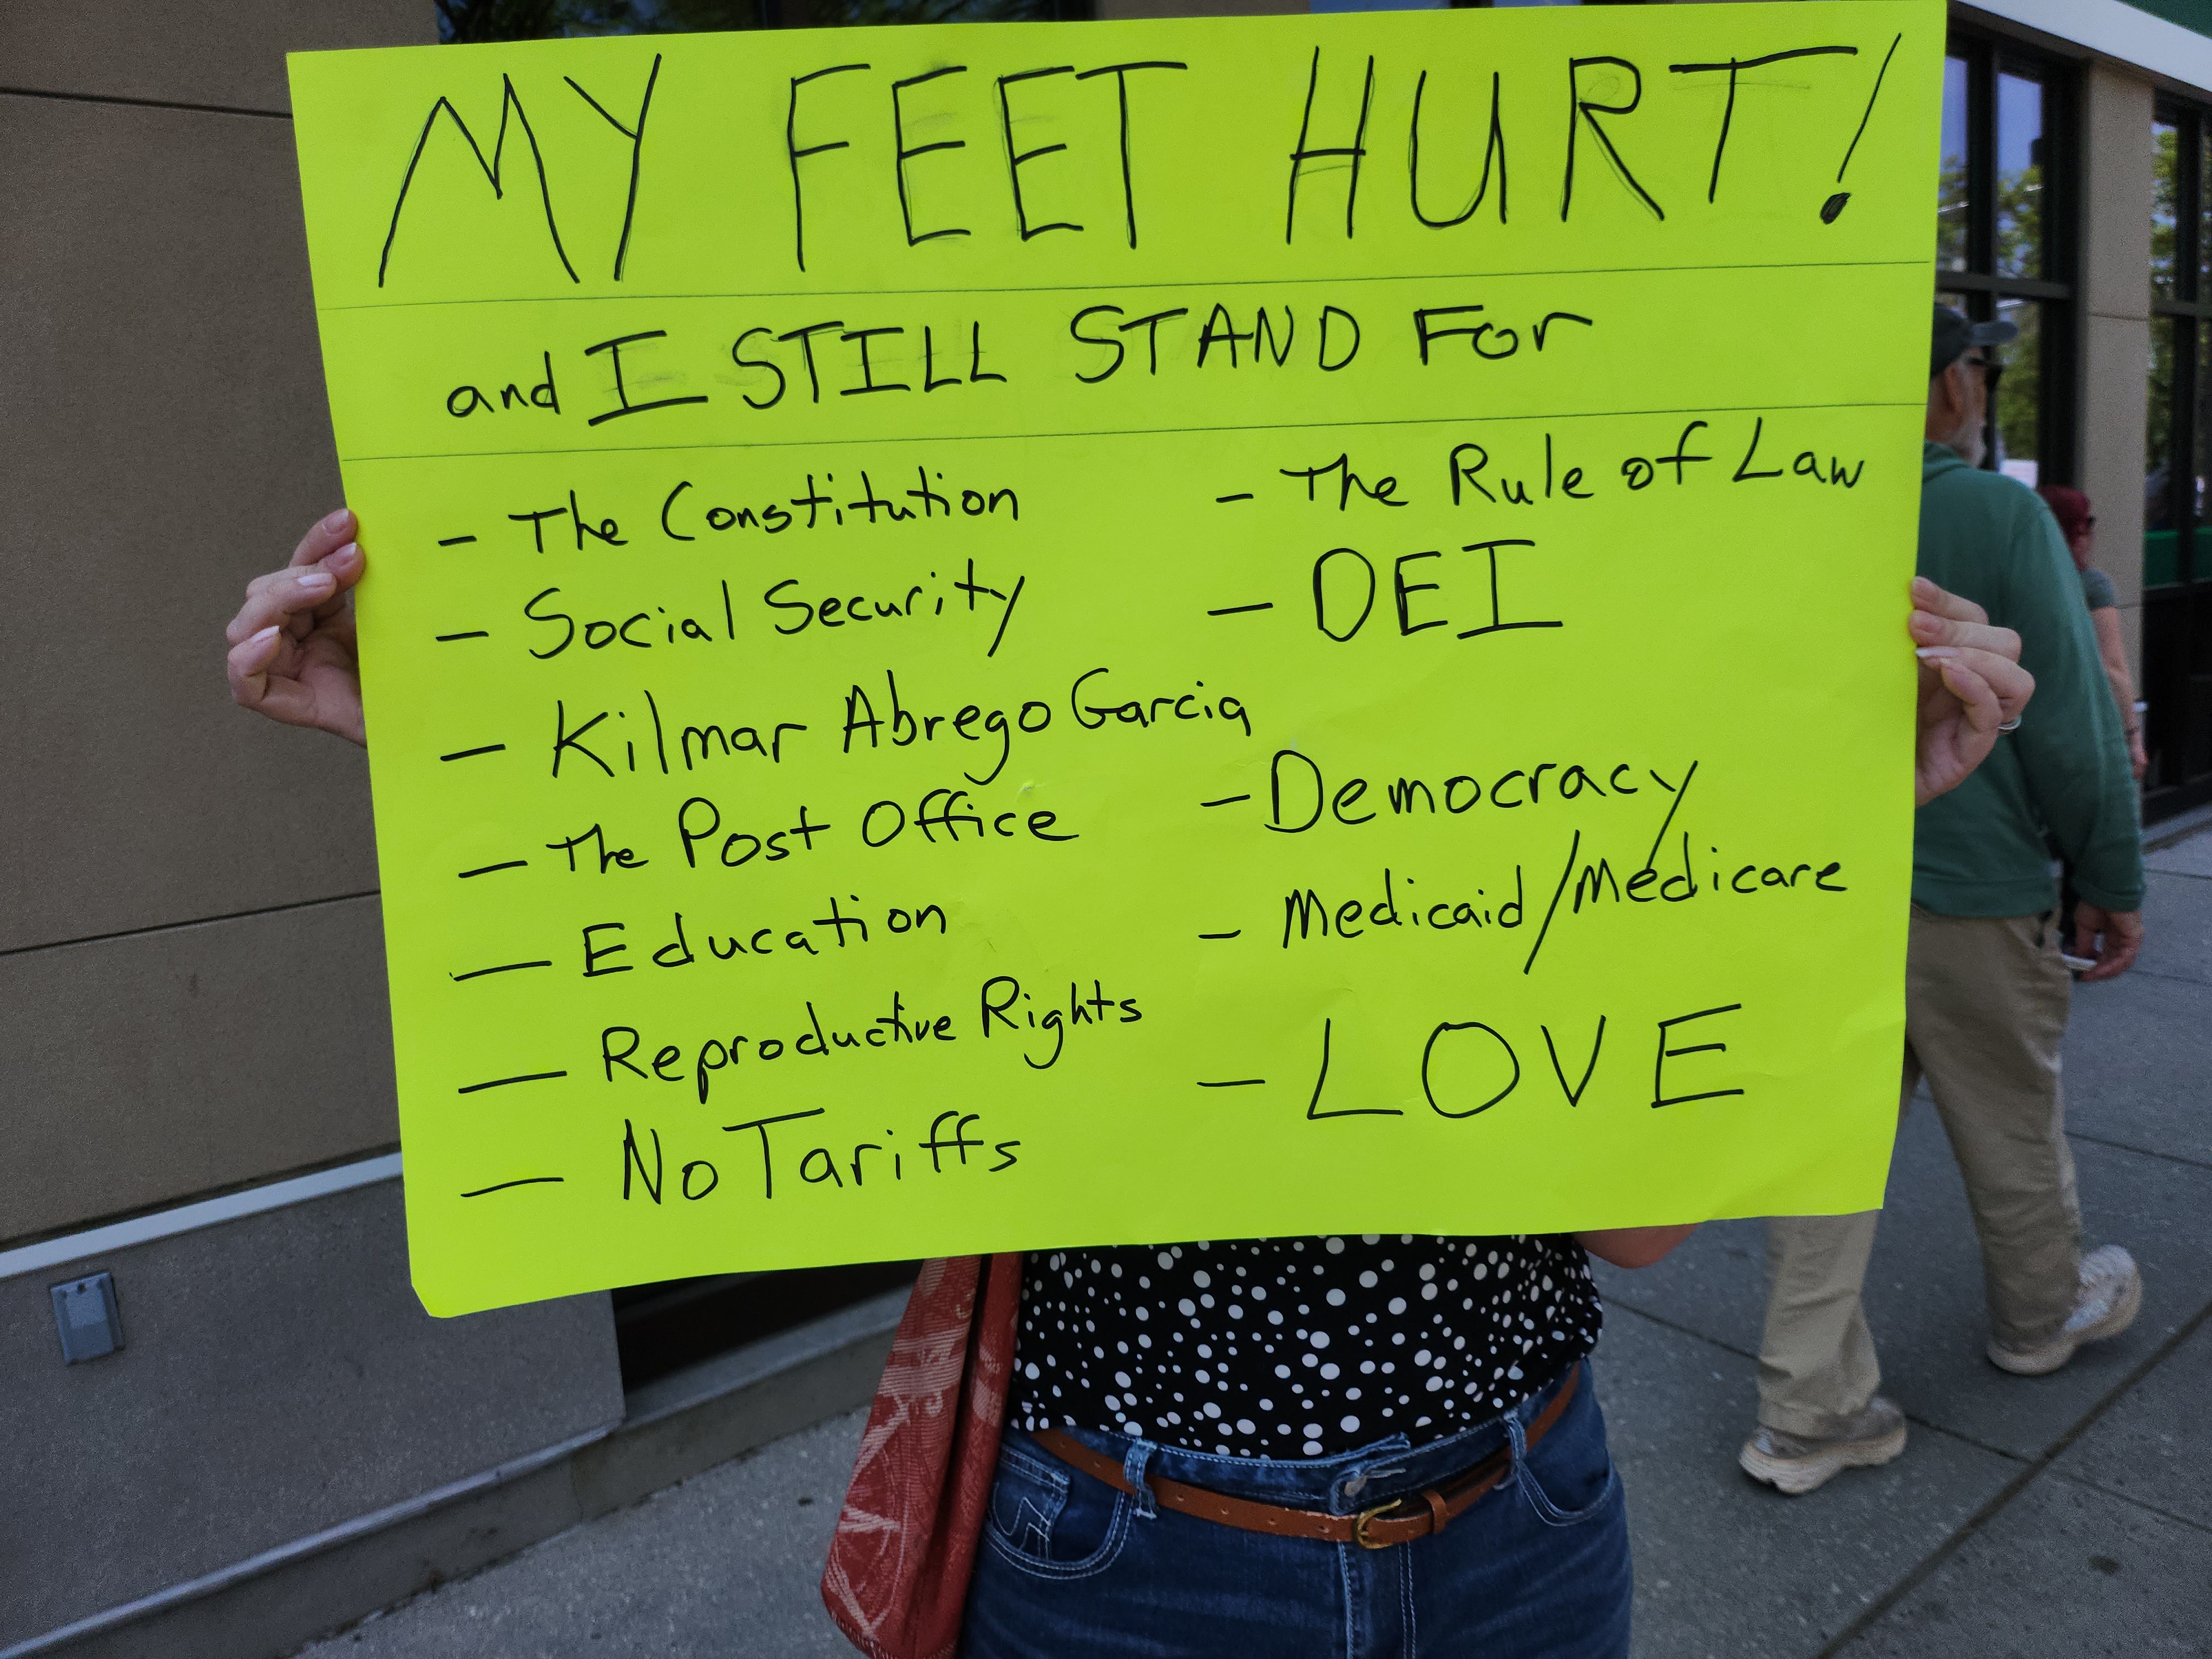 MY FEET HURT!
and I STILL STAND For
- The Constitution
- Social Security
- Kilmar Abrego Garcia
- The Post Office
- Education
- Reproductive Rights
- No Tariffs
- The Rule of Law
- DEI
- Democracy
- Medicaid/Medicare
- LOVE